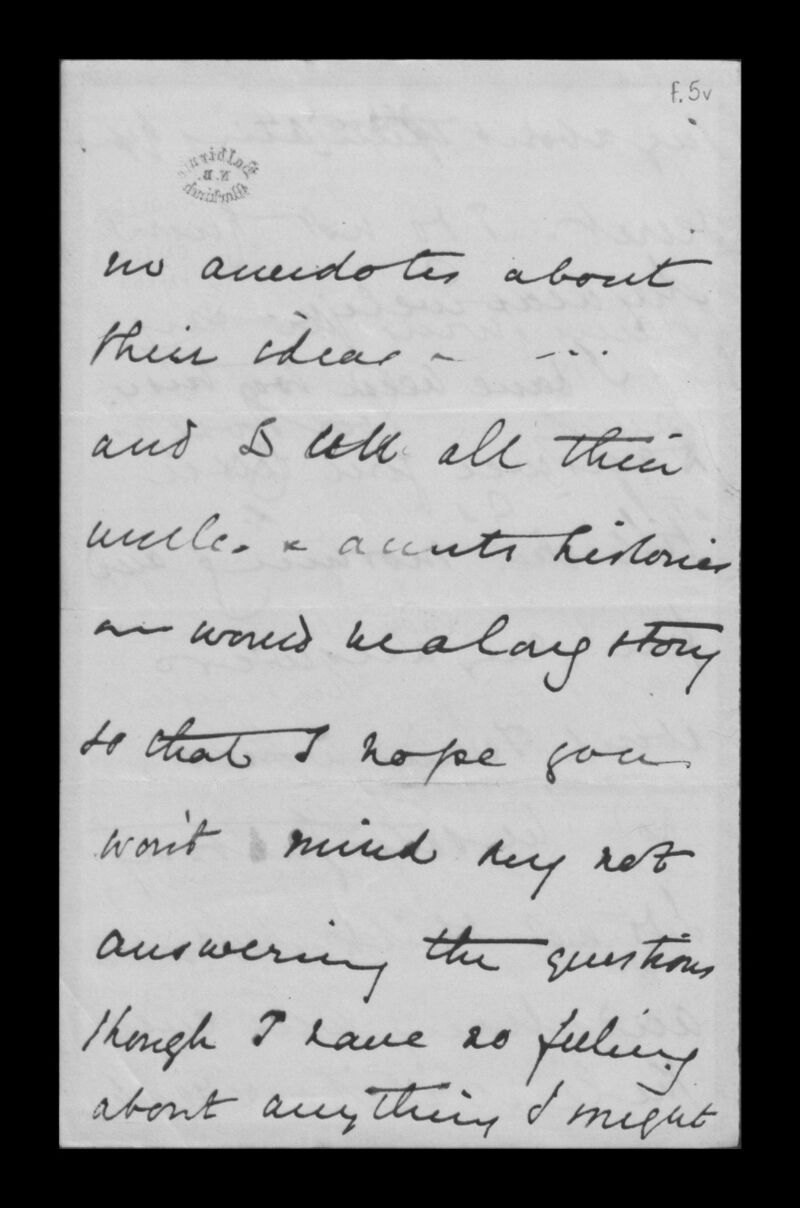 f.5v
no anecdotes about
their ideas - - ...
and all their
uncles & aunts histories
would be a long story
so that I hope you
won't mind my not
answering the questions
though I have no feeling
about anything I might